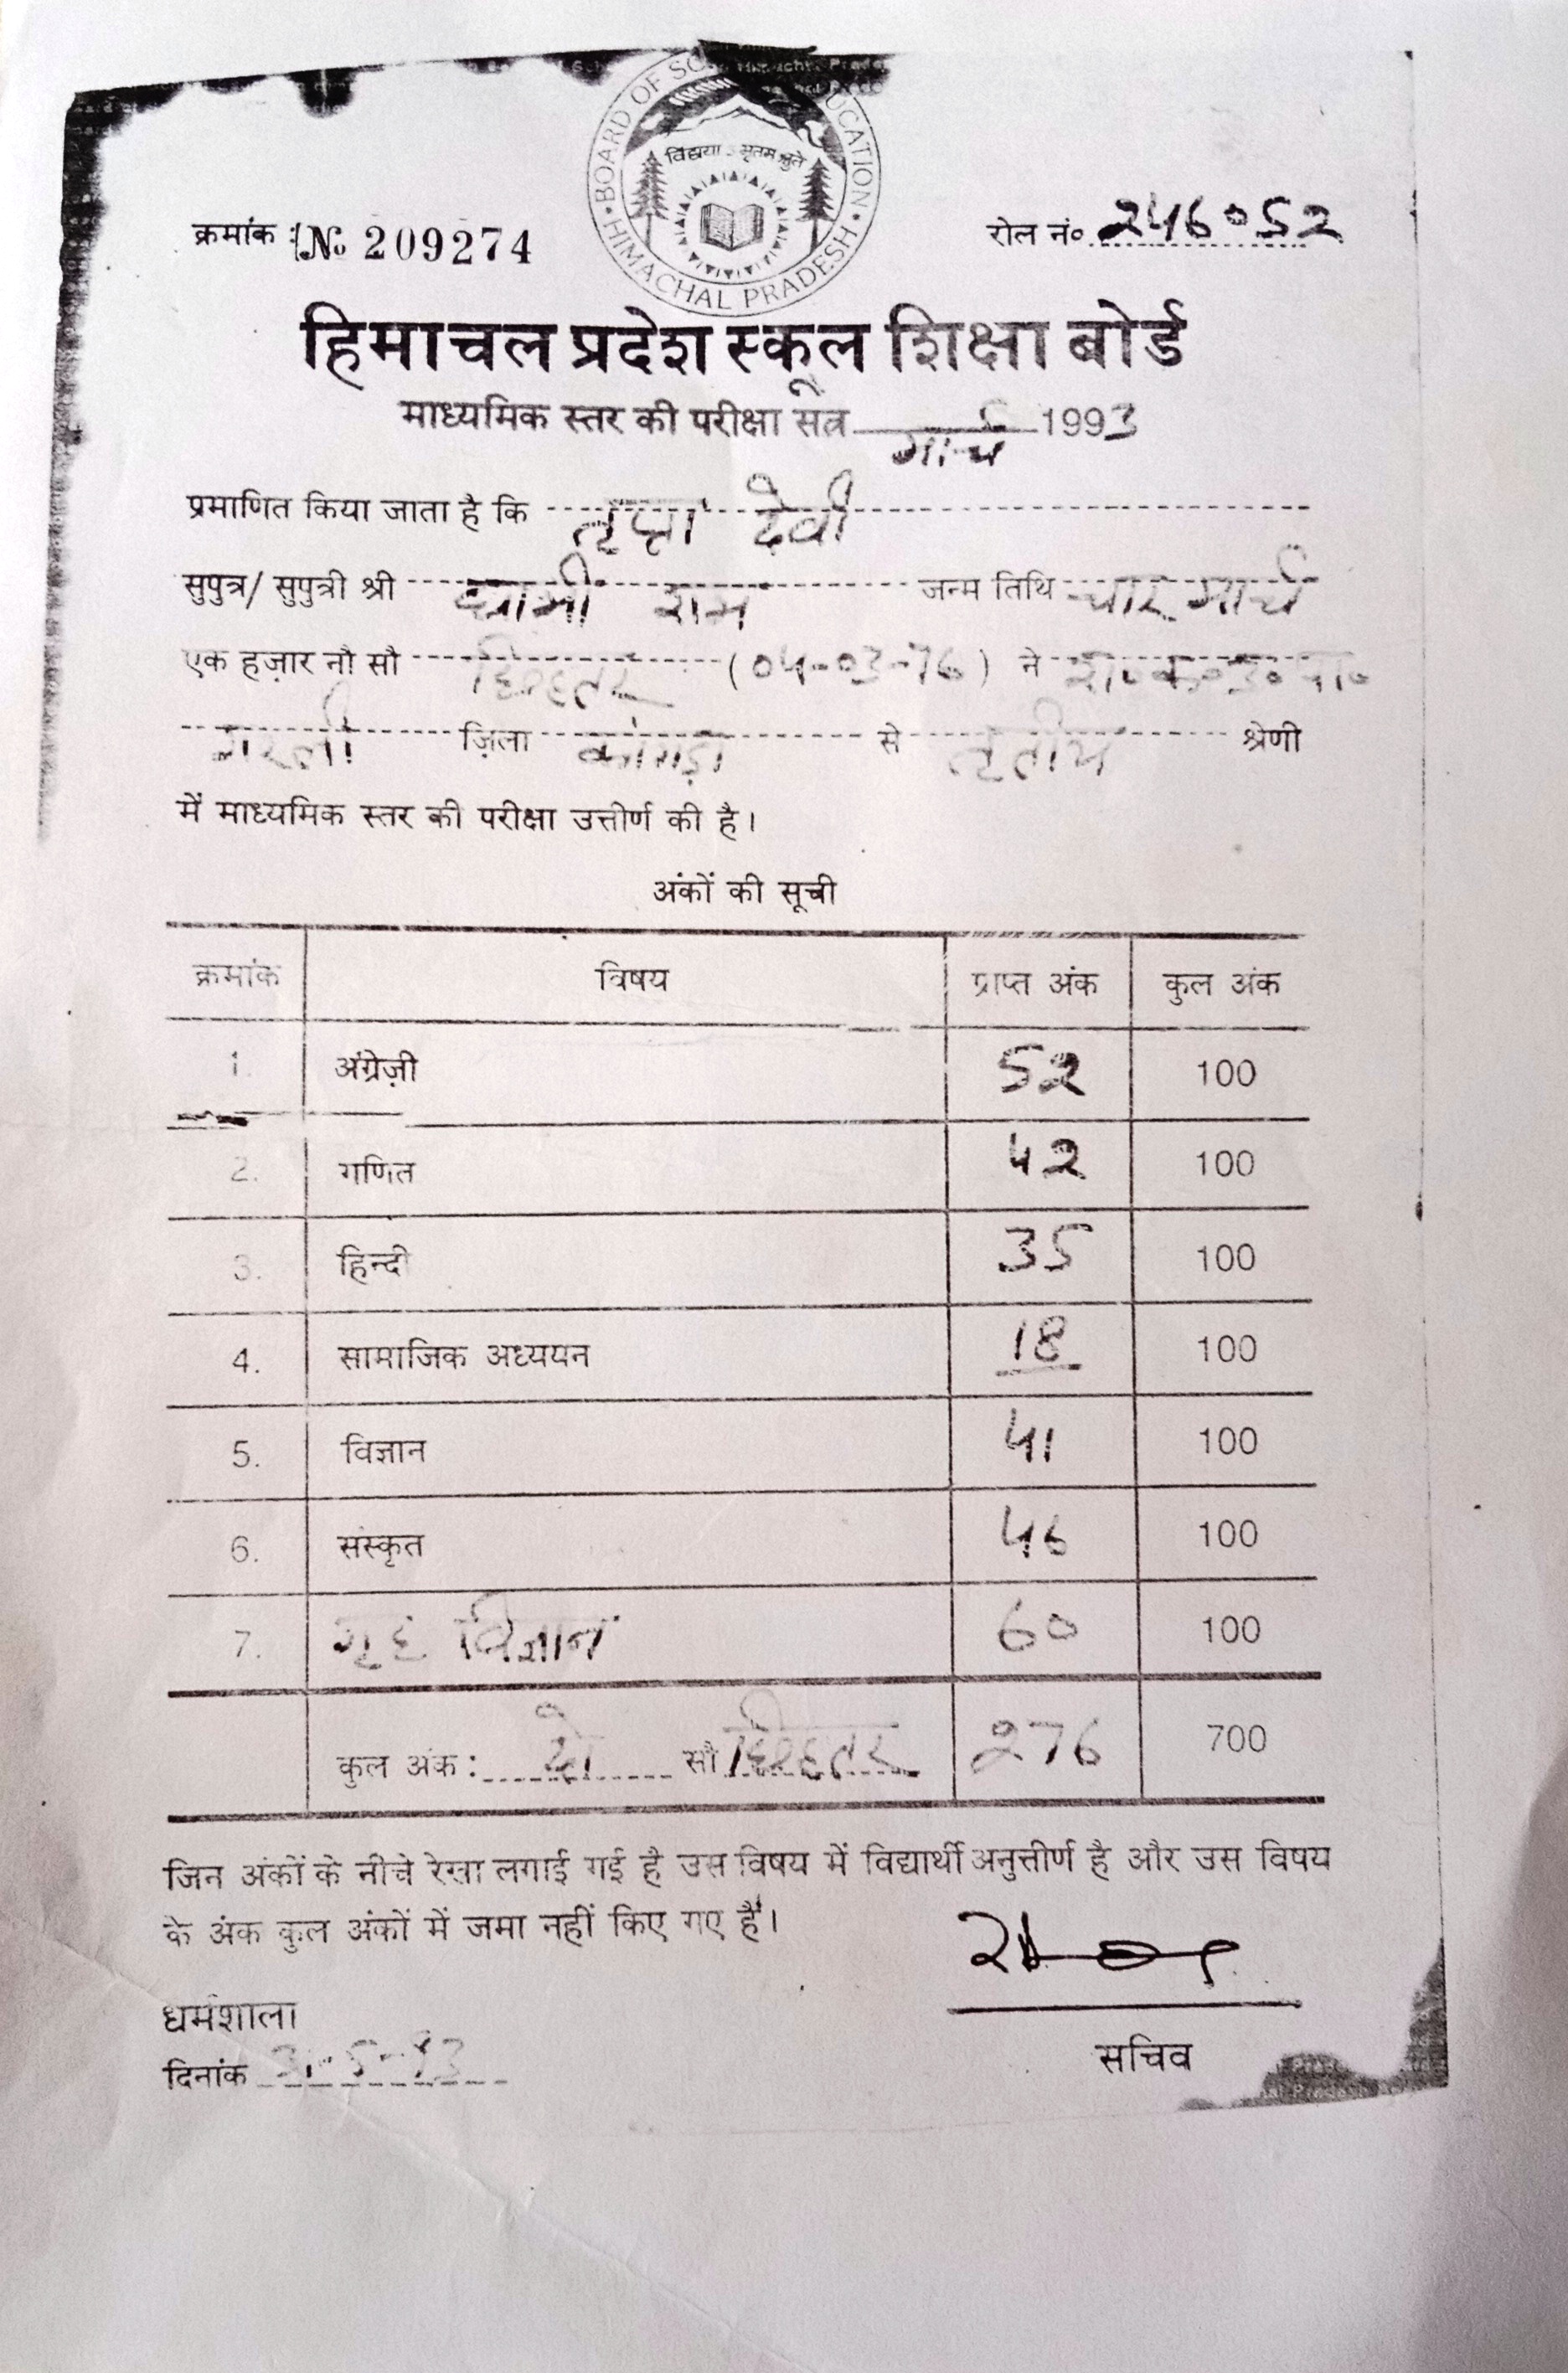 BOARD OF SC UCATION
HIMACHAL PRADESH
विद्यया ऽमृतमश्नुते
क्रमांक № 209274
रोल नं० 246052
हिमाचल प्रदेश स्कूल शिक्षा बोर्ड
माध्यमिक स्तर की परीक्षा सत्र मार्च 1993
प्रमाणित किया जाता है कि तृप्ता देवी
सुपुत्र/ सुपुत्री श्री राम जन्म तिथि चार मार्च
एक हज़ार नौ सौ छिहत्तर (04-03-76) ने रा०क०उ०पा०
गरली ज़िला कांगड़ा से तृतीय श्रेणी
में माध्यमिक स्तर की परीक्षा उत्तीर्ण की है।
अंकों की सूची
क्रमांक विषय प्राप्त अंक कुल अंक
1. अंग्रेज़ी 52 100
2. गणित 42 100
3. हिन्दी 35 100
4. सामाजिक अध्ययन 18 100
5. विज्ञान 41 100
6. संस्कृत 46 100
7. गृह विज्ञान 60 100
कुल अंक : दो सौ छिहत्तर 276 700
जिन अंकों के नीचे रेखा लगाई गई है उस विषय में विद्यार्थी अनुत्तीर्ण है और उस विषय
के अंक कुल अंकों में जमा नहीं किए गए हैं।
धर्मशाला
दिनांक 31-5-93
सचिव